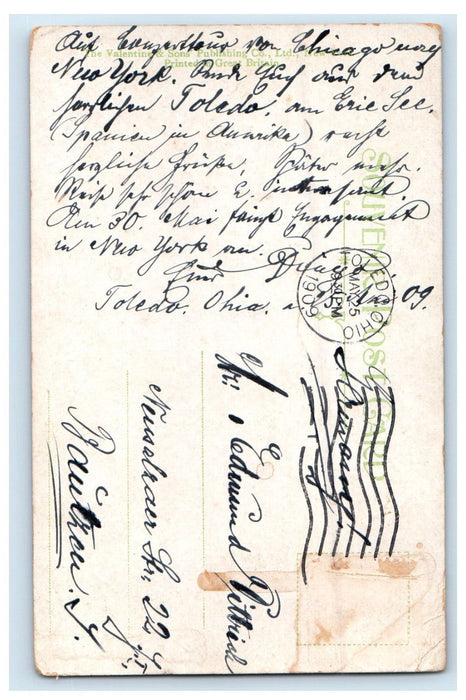 The Valentine & Sons' Publishing Co., Ltd., New
Printed in Great Britain
Auf Conzerttour von Chicago nach
New York. Sende Euch aus dem
herrlichen Toledo, am Erie See,
(Spanien in Amerika) recht
herzliche Grüße. Später mehr.
Reise sehr schön & interessant.
Am 30. Mai fängt Engagement
in New York an.
Euer
Toledo. Ohio. Mai 09.
SOUVENIR POST CARD
TOLEDO, OHIO
MAY 25
PM
1909
Edmund Wittrich
Str. 22
Bautzen i. S.